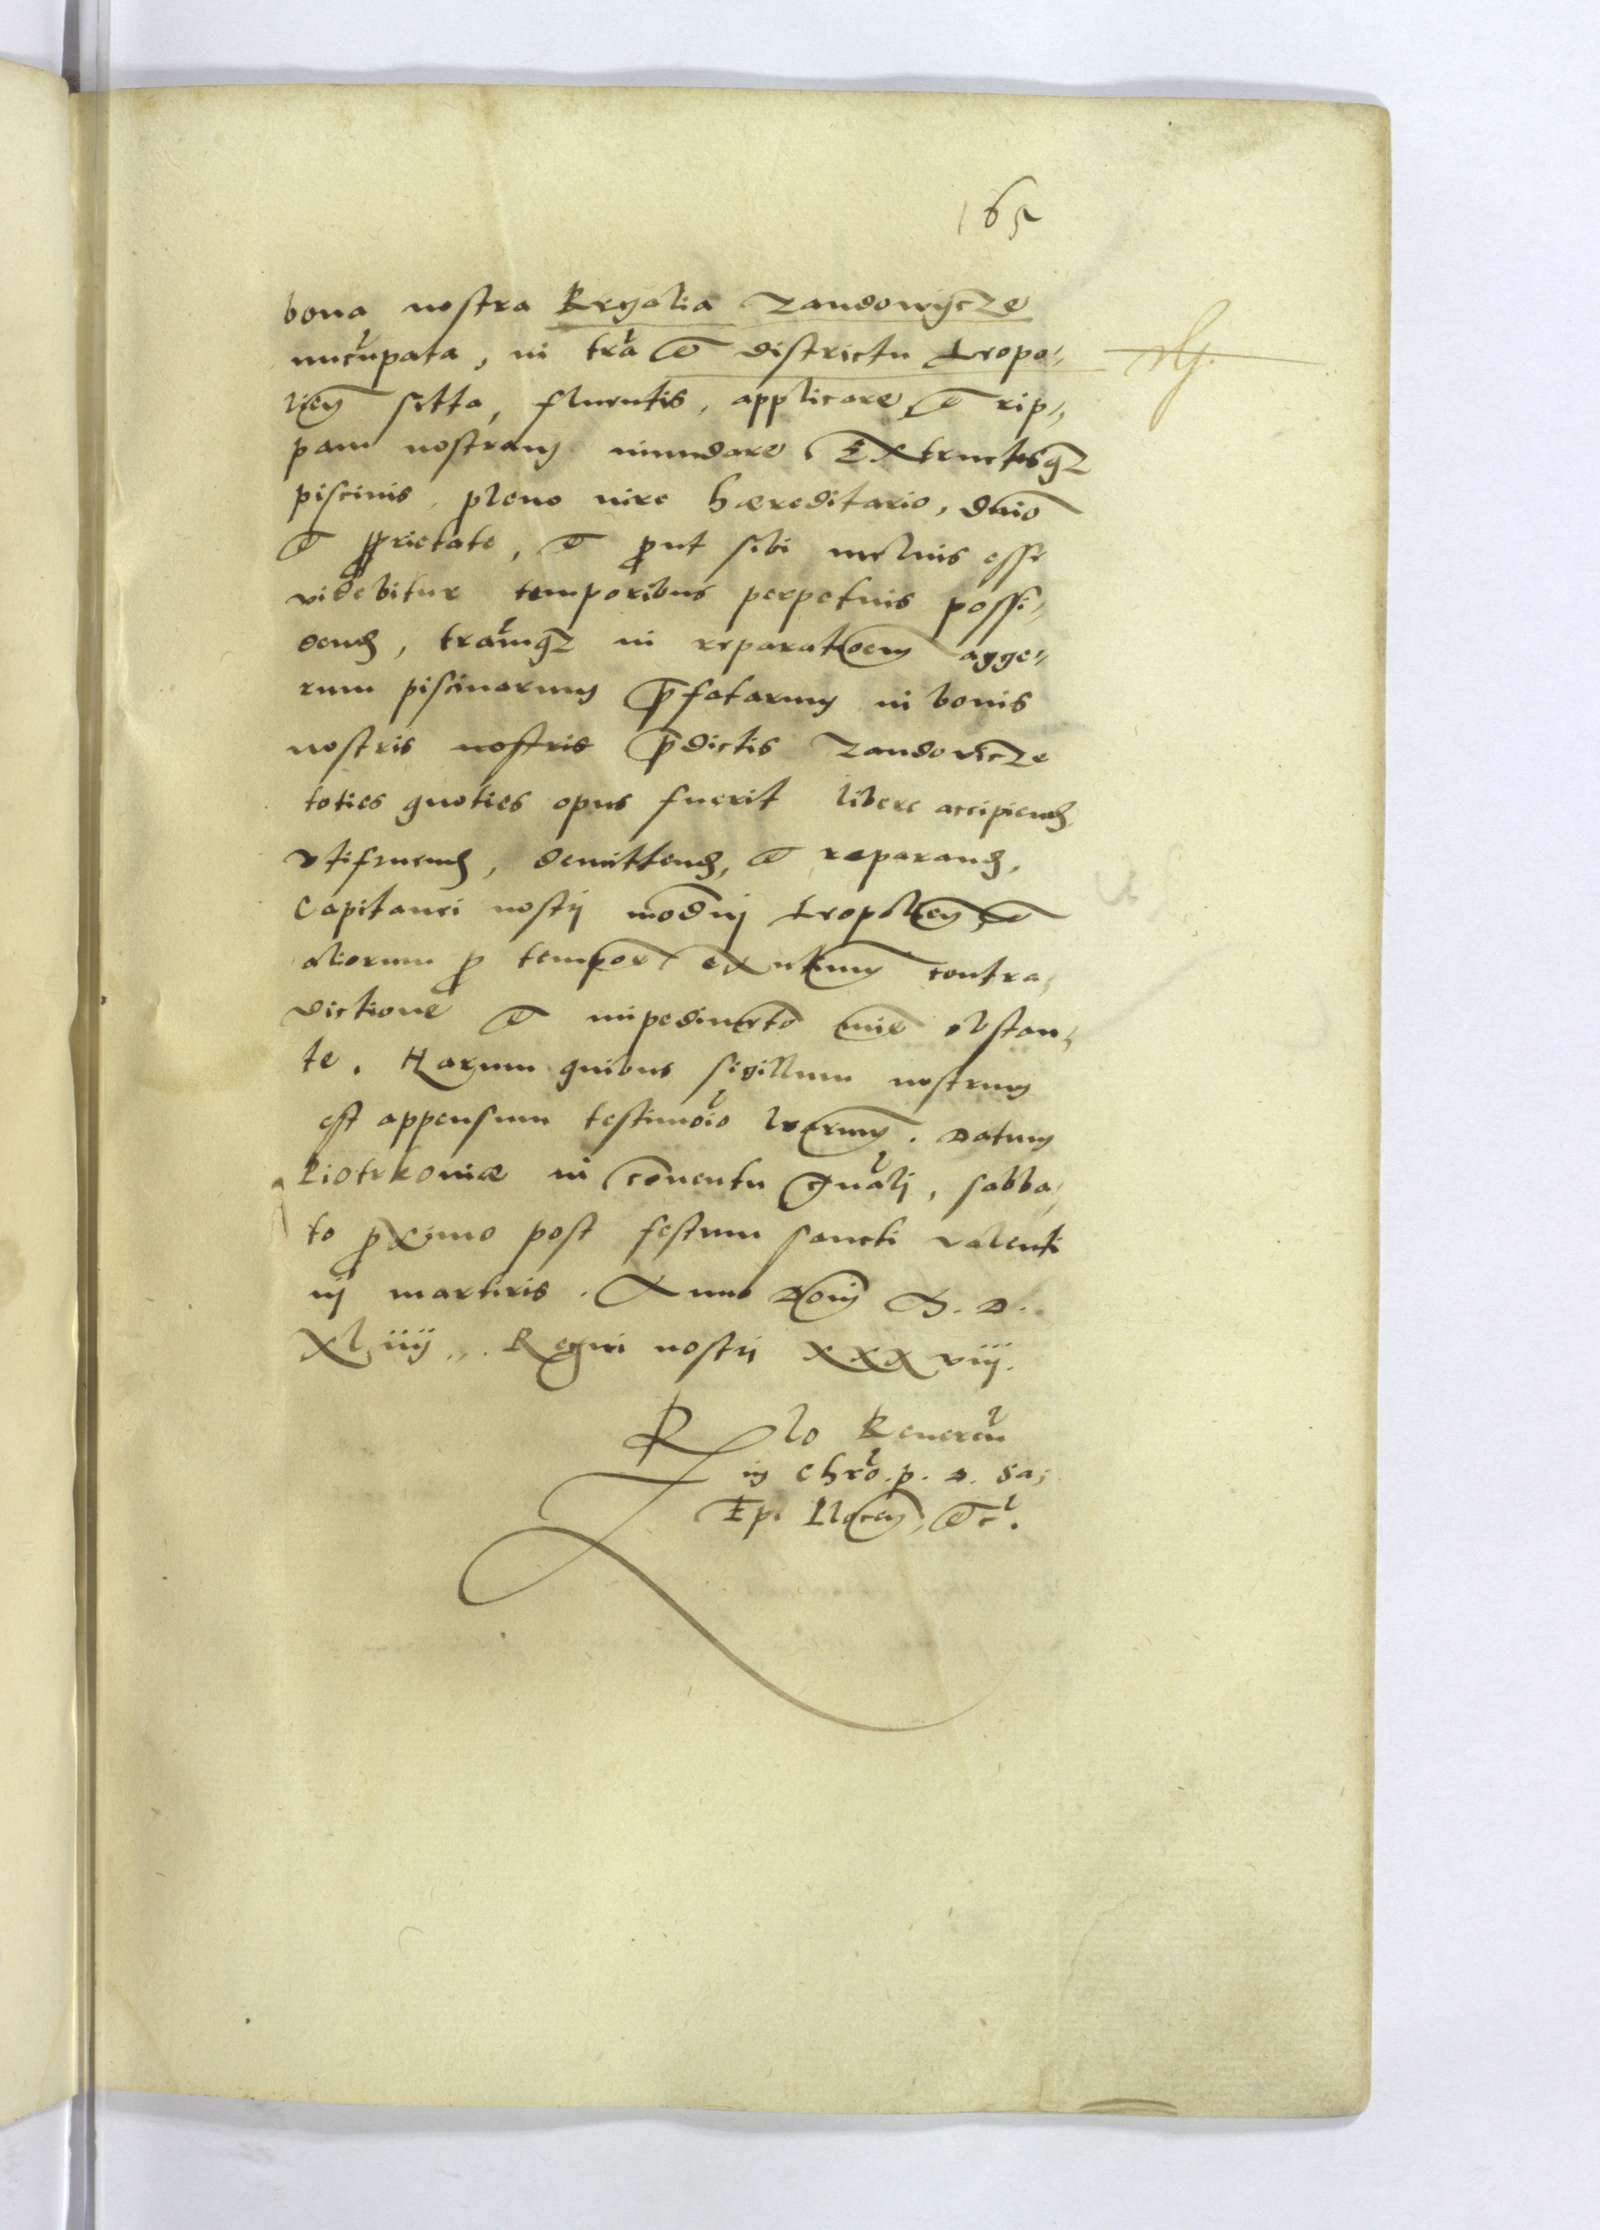 165
bona nostra Regalia Zandowycze
nucupata, in tra et districtu Leopo-
lien sitta, fluentis, applicare, et rip-
pam nostram inundare, Extructisqz
piscinis, pleno iure hæreditario, dnio
et prietate, et put sibi melius esse
videbitur temporibus perpetuis possi-
dend, tramqz in reparatoem agge-
rum piscinarum pfatarum in bonis
nostris nostris pdictis Zandovicze
toties quoties opus fuerit libere accipiend,
vtifruend, demittend, et reparand,
Capitanei nostri modnj Leopolien et
aliorum p tempore exntium contra-
dictione et impedimto mie obstan-
te. Harum quibus sigillum nostrum
est appensum testimoio lrarum. Datum
Piotrkoviæ in conentu gnalj, sabba-
to pximo post festum sancti Valenti
nj martiris. Anno Domi M. D.
XLiiij. Regni nostri XXXviij.
Rlo Reueren
in Chro. p. D. Sa:
Epi Plocen, etc.